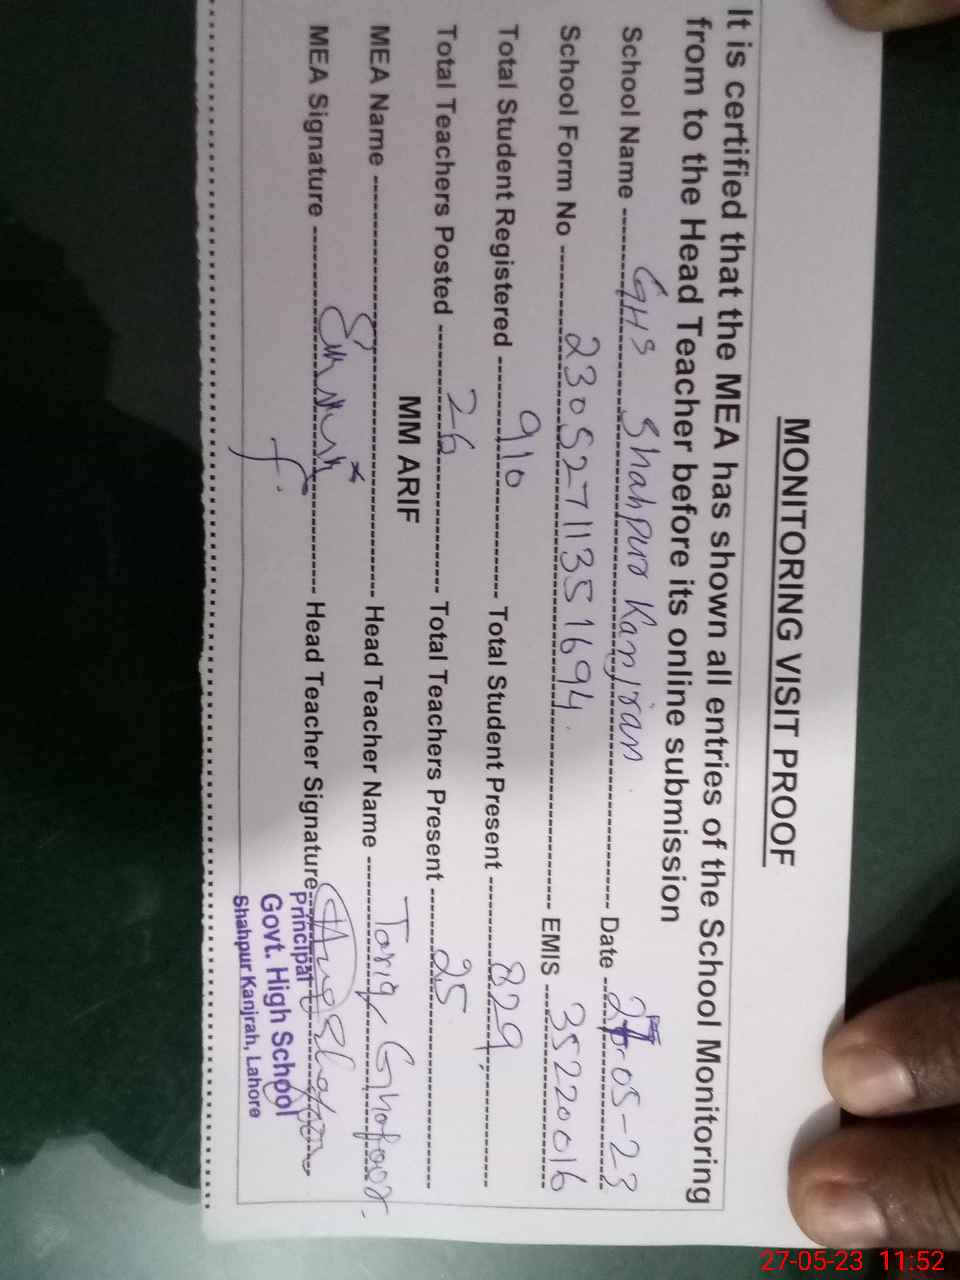 MONITORING VISIT PROOF
It is certified that the MEA has shown all entries of the School Monitoring
from to the Head Teacher before its online submission
School Name GHS Shahpur Kanjran Date 27-05-23
School Form No 23052711351694 EMIS 35220016
Total Student Registered 910 Total Student Present 829
Total Teachers Posted 26 Total Teachers Present 25
MM ARIF
MEA Name Head Teacher Name Tariq Ghafoor
MEA Signature Head Teacher Signature
Principal
Govt. High School
Shahpur Kanjrah, Lahore
27-05-23 11:52